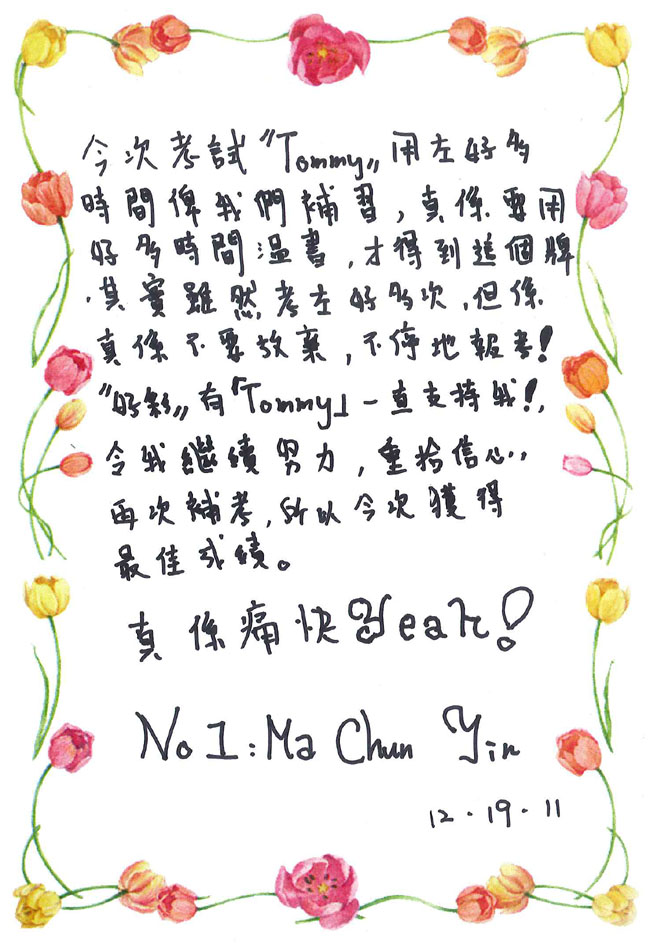 今次考試“Tommy„用左好多
時間俾我們補習,真係要用
好多時間溫書,才得到這個牌
.其實雖然考左好多次,但係
真係不要放棄,不停地報考!
“好彩„有「Tommy」一直支持我!,
令我繼續努力,重拾信心..
再次補考,所以今次獲得
最佳成績。
真係痛快Yeah!
No1:Ma Chun Yin
12.19.11